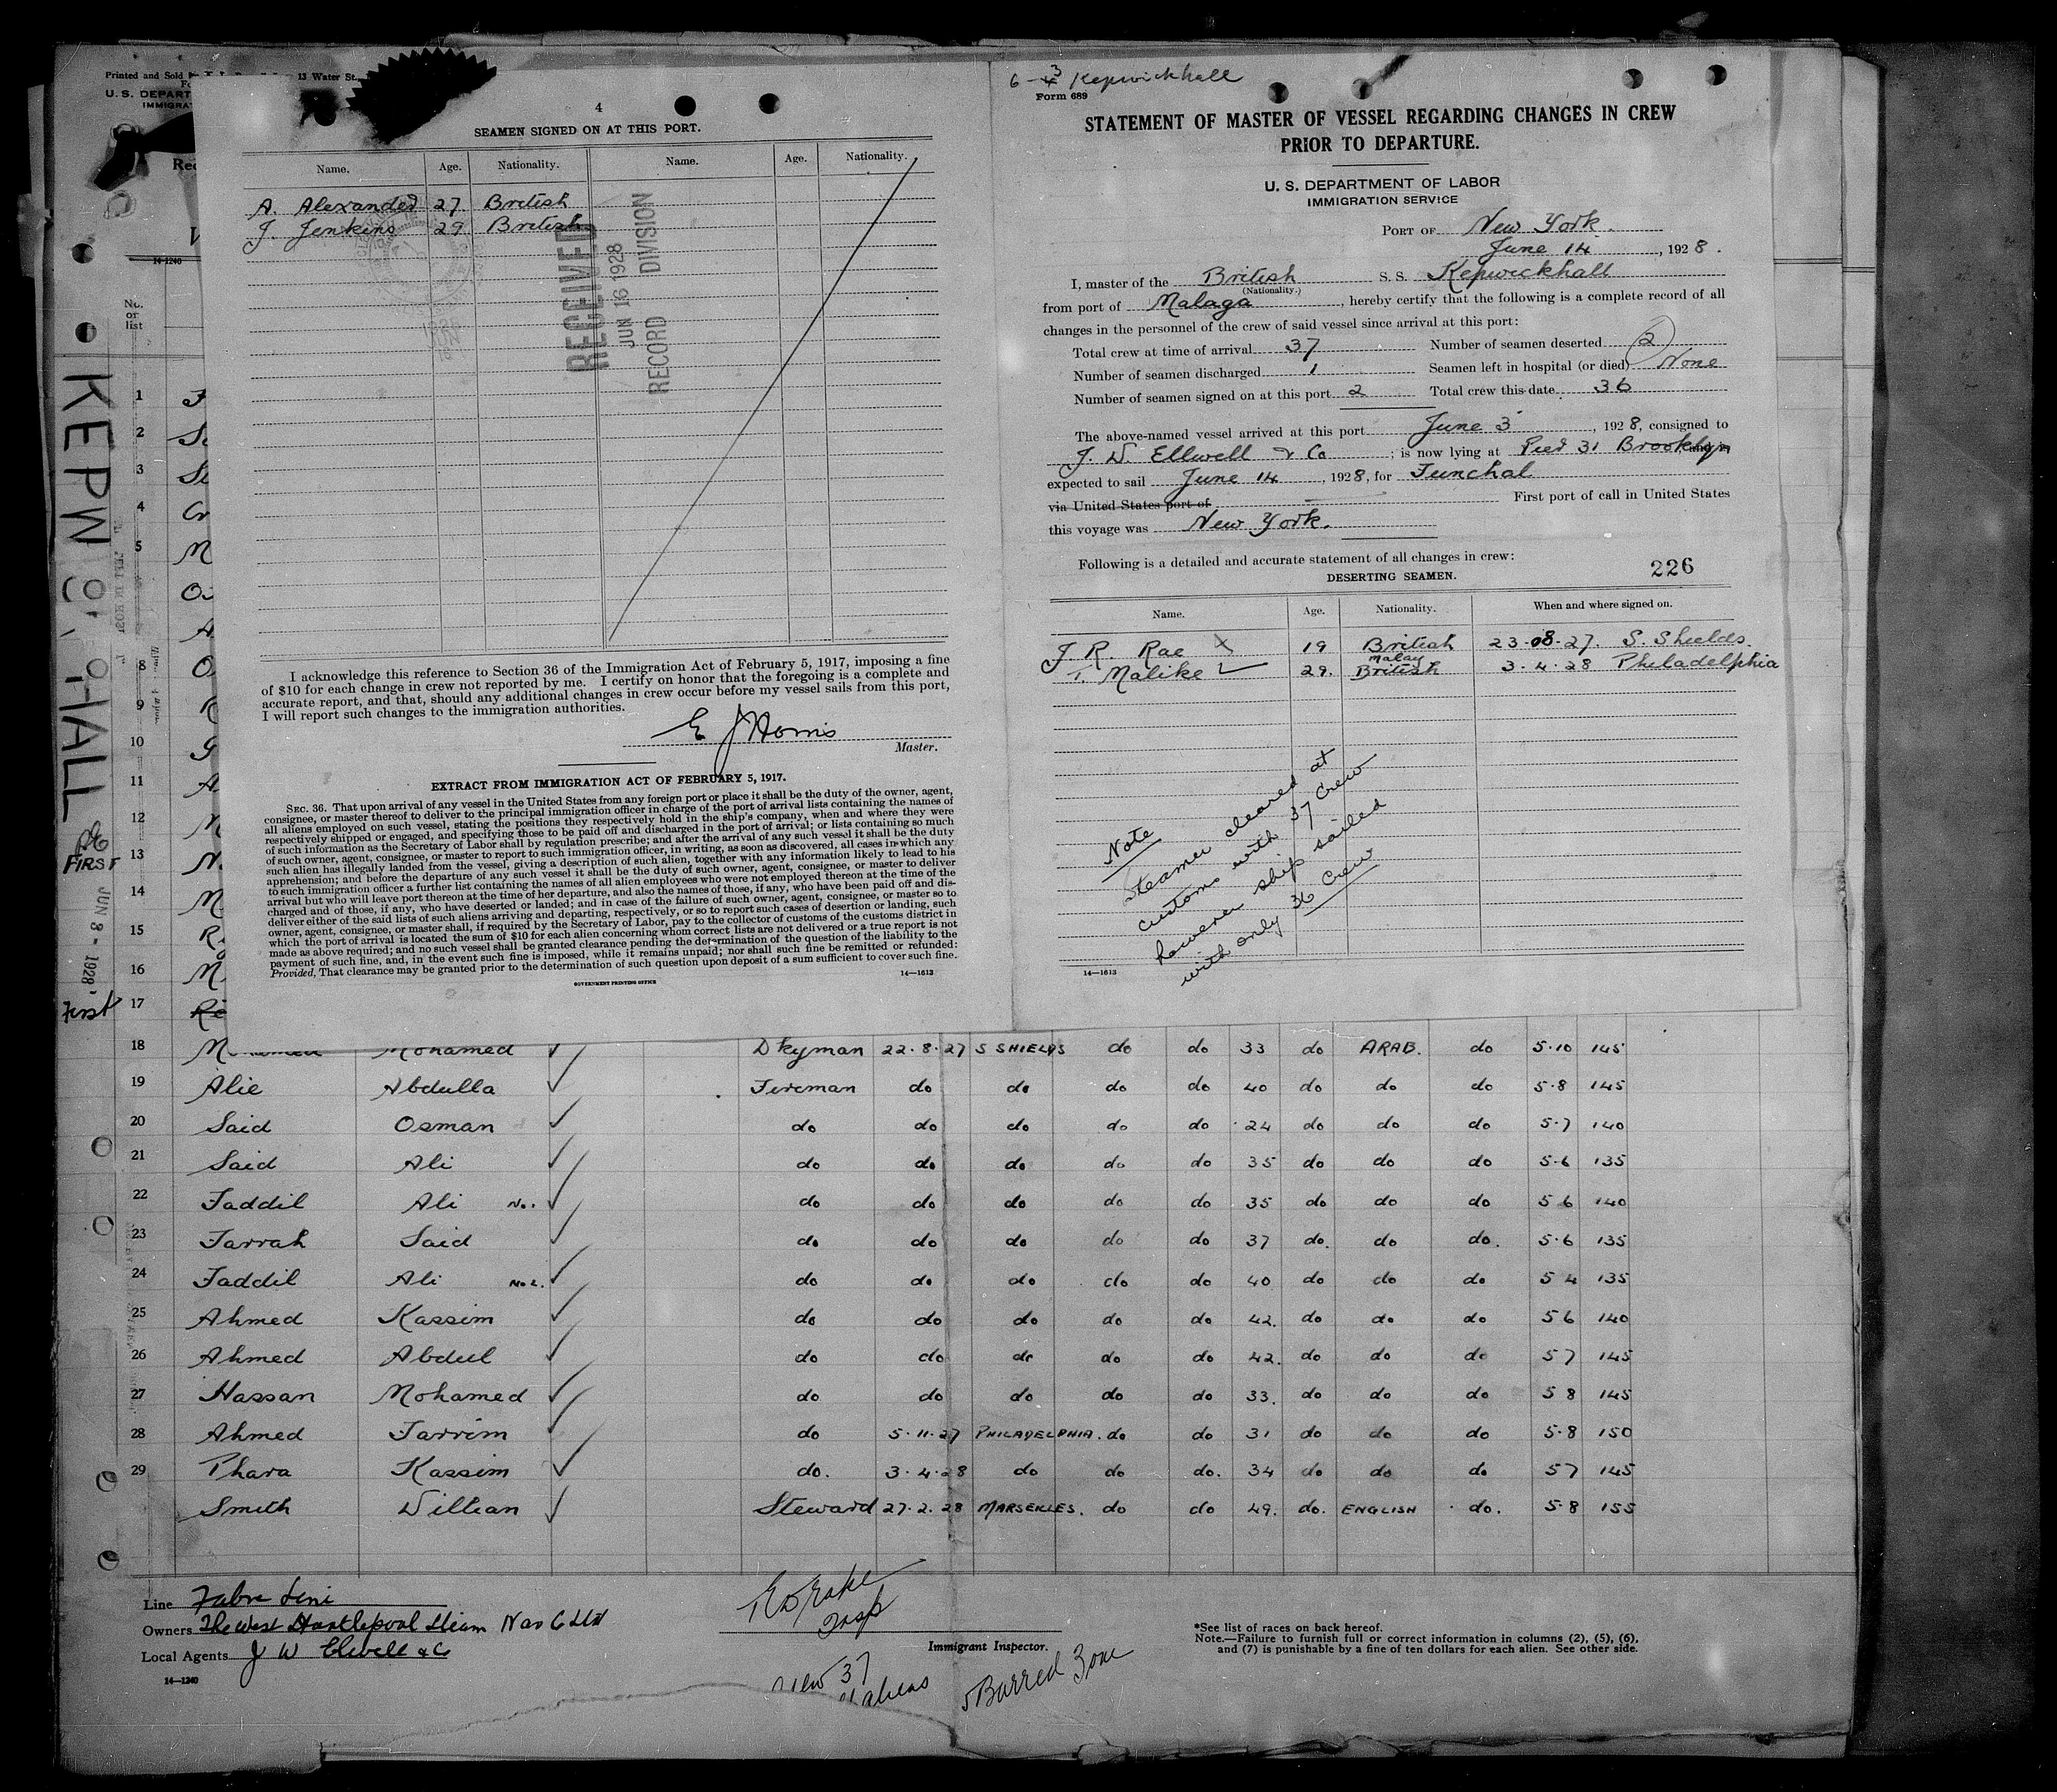 Printed and Sold
13 Water St.,
U. S. DEPART
IMMIGRA
Rec
14-1240
No.
or
list
KEPWICKHALL
FIRST
JUN 3 - 1928
First
4
SEAMEN SIGNED ON AT THIS PORT.
Name. Age. Nationality. Name. Age. Nationality.
A. Alexander 27 British
J. Jenkins 29 British
RECEIVED
JUN 16 1928
RECORD DIVISION
I acknowledge this reference to Section 36 of the Immigration Act of February 5, 1917, imposing a fine
of $10 for each change in crew not reported by me. I certify on honor that the foregoing is a complete and
accurate report, and that, should any additional changes in crew occur before my vessel sails from this port,
I will report such changes to the immigration authorities.
E J Horris
Master.
EXTRACT FROM IMMIGRATION ACT OF FEBRUARY 5, 1917.
SEC. 36. That upon arrival of any vessel in the United States from any foreign port or place it shall be the duty of the owner, agent,
consignee, or master thereof to deliver to the principal immigration officer in charge of the port of arrival lists containing the names of
all aliens employed on such vessel, stating the positions they respectively hold in the ship's company, when and where they were
respectively shipped or engaged, and specifying those to be paid off and discharged in the port of arrival; or lists containing so much
of such information as the Secretary of Labor shall by regulation prescribe; and after the arrival of any such vessel it shall be the duty
of such owner, agent, consignee, or master to report to such immigration officer, in writing, as soon as discovered, all cases in which any
such alien has illegally landed from the vessel, giving a description of such alien, together with any information likely to lead to his
apprehension; and before the departure of any such vessel it shall be the duty of such owner, agent, consignee, or master to deliver
to such immigration officer a further list containing the names of all alien employees who were not employed thereon at the time of the
arrival but who will leave port thereon at the time of her departure, and also the names of those, if any, who have been paid off and dis-
charged and of those, if any, who have deserted or landed; and in case of the failure of such owner, agent, consignee, or master so to
deliver either of the said lists of such aliens arriving and departing, respectively, or so to report such cases of desertion or landing, such
owner, agent, consignee, or master shall, if required by the Secretary of Labor, pay to the collector of customs of the customs district in
which the port of arrival is located the sum of $10 for each alien concerning whom correct lists are not delivered or a true report is not
made as above required; and no such vessel shall be granted clearance pending the determination of the question of the liability to the
payment of such fine, and, in the event such fine is imposed, while it remains unpaid; nor shall such fine be remitted or refunded:
Provided, That clearance may be granted prior to the determination of such question upon deposit of a sum sufficient to cover such fine.
14—1613
GOVERNMENT PRINTING OFFICE
6-3 Kepwickhall
Form 689
STATEMENT OF MASTER OF VESSEL REGARDING CHANGES IN CREW
PRIOR TO DEPARTURE.
U. S. DEPARTMENT OF LABOR
IMMIGRATION SERVICE
PORT OF New York.
June 14, 1928.
I, master of the British S. S. Kepwickhall
(Nationality.)
from port of Malaga, hereby certify that the following is a complete record of all
changes in the personnel of the crew of said vessel since arrival at this port:
Total crew at time of arrival 37 Number of seamen deserted 2
Number of seamen discharged 1 Seamen left in hospital (or died) None
Number of seamen signed on at this port 2 Total crew this date 36
The above-named vessel arrived at this port June 3, 1928, consigned to
J. W. Ellwell & Co; is now lying at Pier 31 Brooklyn
expected to sail June 14, 1928, for Funchal
via United States port of First port of call in United States
this voyage was New York.
Following is a detailed and accurate statement of all changes in crew:
226
DESERTING SEAMEN.
Name. Age. Nationality. When and where signed on.
J. R. Rae 19 British 23-08-27. S. Shields
malay
T. Malike 29. British 3-4-28 Philadelphia
Note
Steamer cleared at
customs with 37 crew
however ship sailed
with only 36 crew
14—1613
1
2
3
4
5
8
9
10
11
12
13
14
15
16
17
18 Mohamed Mohamed Dkyman 22-8-27 S SHIELDS do do 33 do ARAB. do 5-10 145
19 Alie Abdulla Fireman do do do do 40 do do do 5-8 145
20 Said Osman do do do do do 24 do do do 5-7 140
21 Said Ali do do do do do 35 do do do 5-6 135
22 Faddil Ali No1. do do do do do 35 do do do 5 6 140
23 Farrah Said do do do do do 37 do. do do. 5-6 135
24 Faddil Ali No 2. do do do do do 40 do do do 5 4 135
25 Ahmed Kassim do do do do do 42. do do do 5 6 140
26 Ahmed Abdul do do do do do 42. do do do 5 7 145
27 Hassan Mohamed do do do do do 33. do do do 5 8 145
28 Ahmed Farrim do 5-11-27 PHILADELPHIA. do do 31 do do do 5-8 150
29 Thara Kassim do. 3-4-28 do do do. 34 do do do 5 7 145
Smith Willian Steward 27-2-28 MARSEILLES. do do 49. do. ENGLISH do. 5-8 155
Line Fabre Line
Owners The West Hartlepool Steam Nav Co Ltd
Local Agents J W Elwell & Co
14—1240
Insp
Immigrant Inspector.
37
aliens
5 Barred Zone
*See list of races on back hereof.
Note.—Failure to furnish full or correct information in columns (2), (5), (6),
and (7) is punishable by a fine of ten dollars for each alien. See other side.